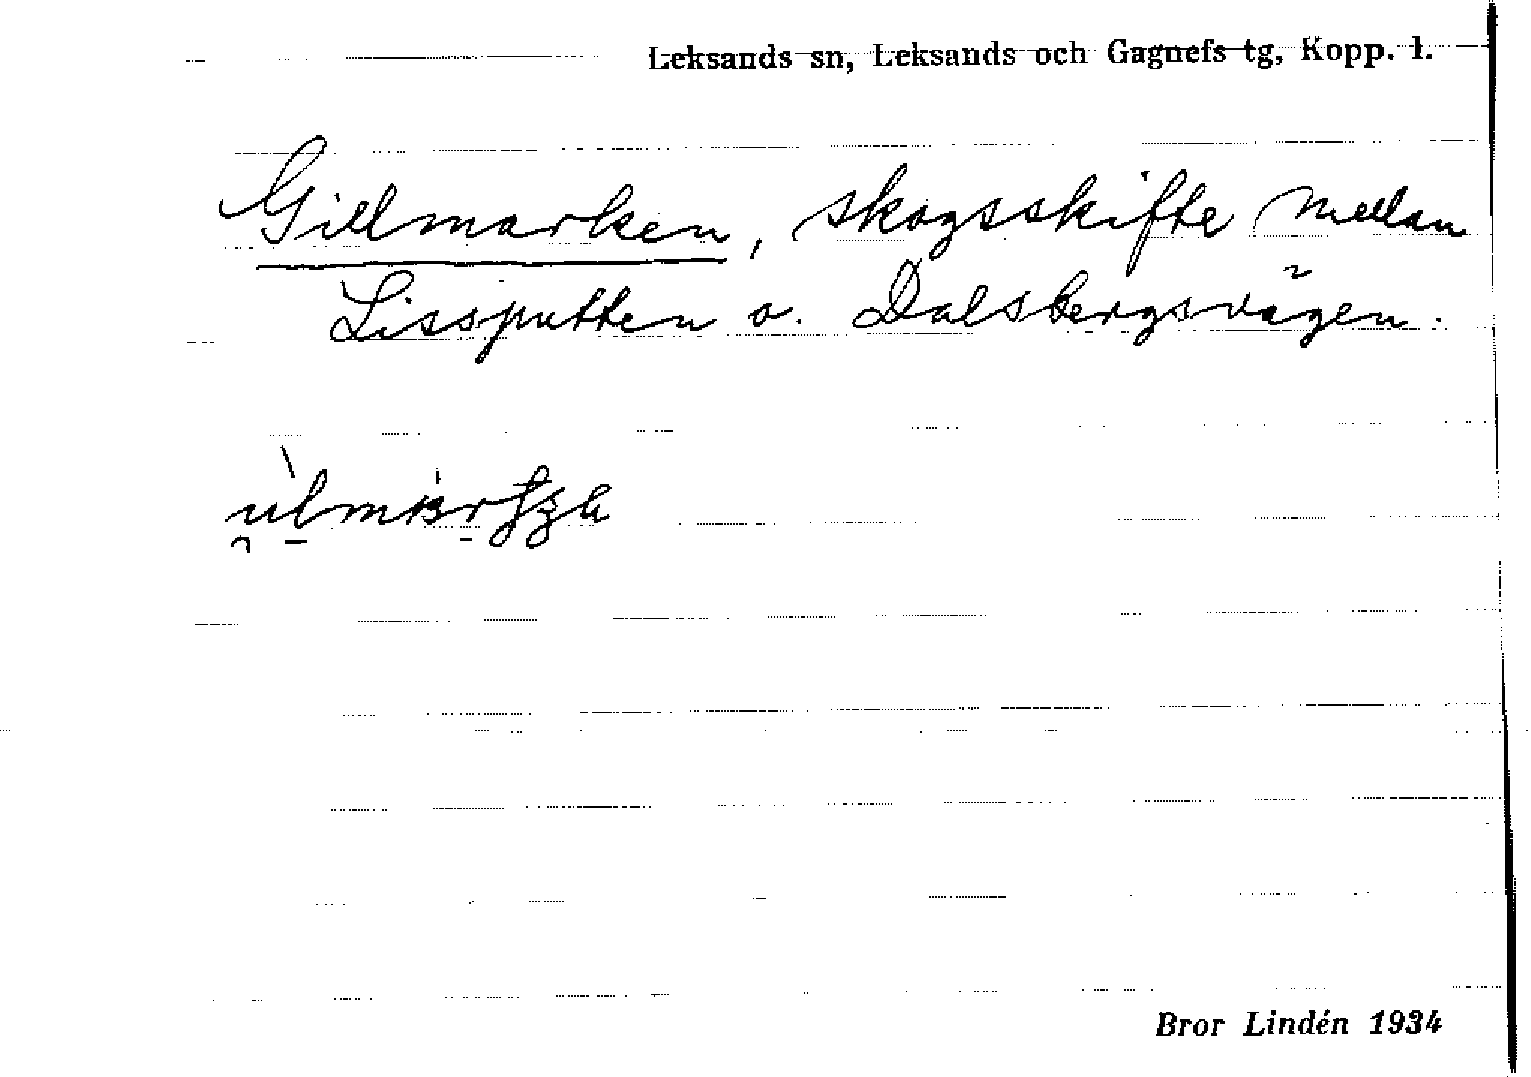 Leksands sn, Leksands och Gagnefs tg, Kopp. l.
Gillmarken, skogsskifte mellan
Lissputten o. Dalsbergsvägen.
Bror Lindén 1934